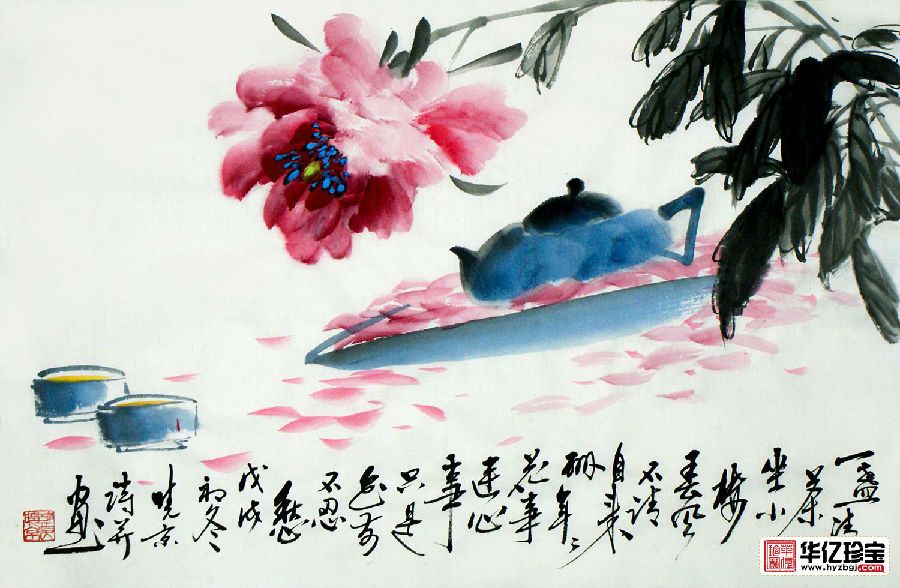 一盏清
茶
坐小
楼
春风
不请
自来
酬年年
花事
连心
事
只是
不忍
愁
戊戌
初冬
晓京
诗并
画
华亿珍宝
www.hyzbgj.com